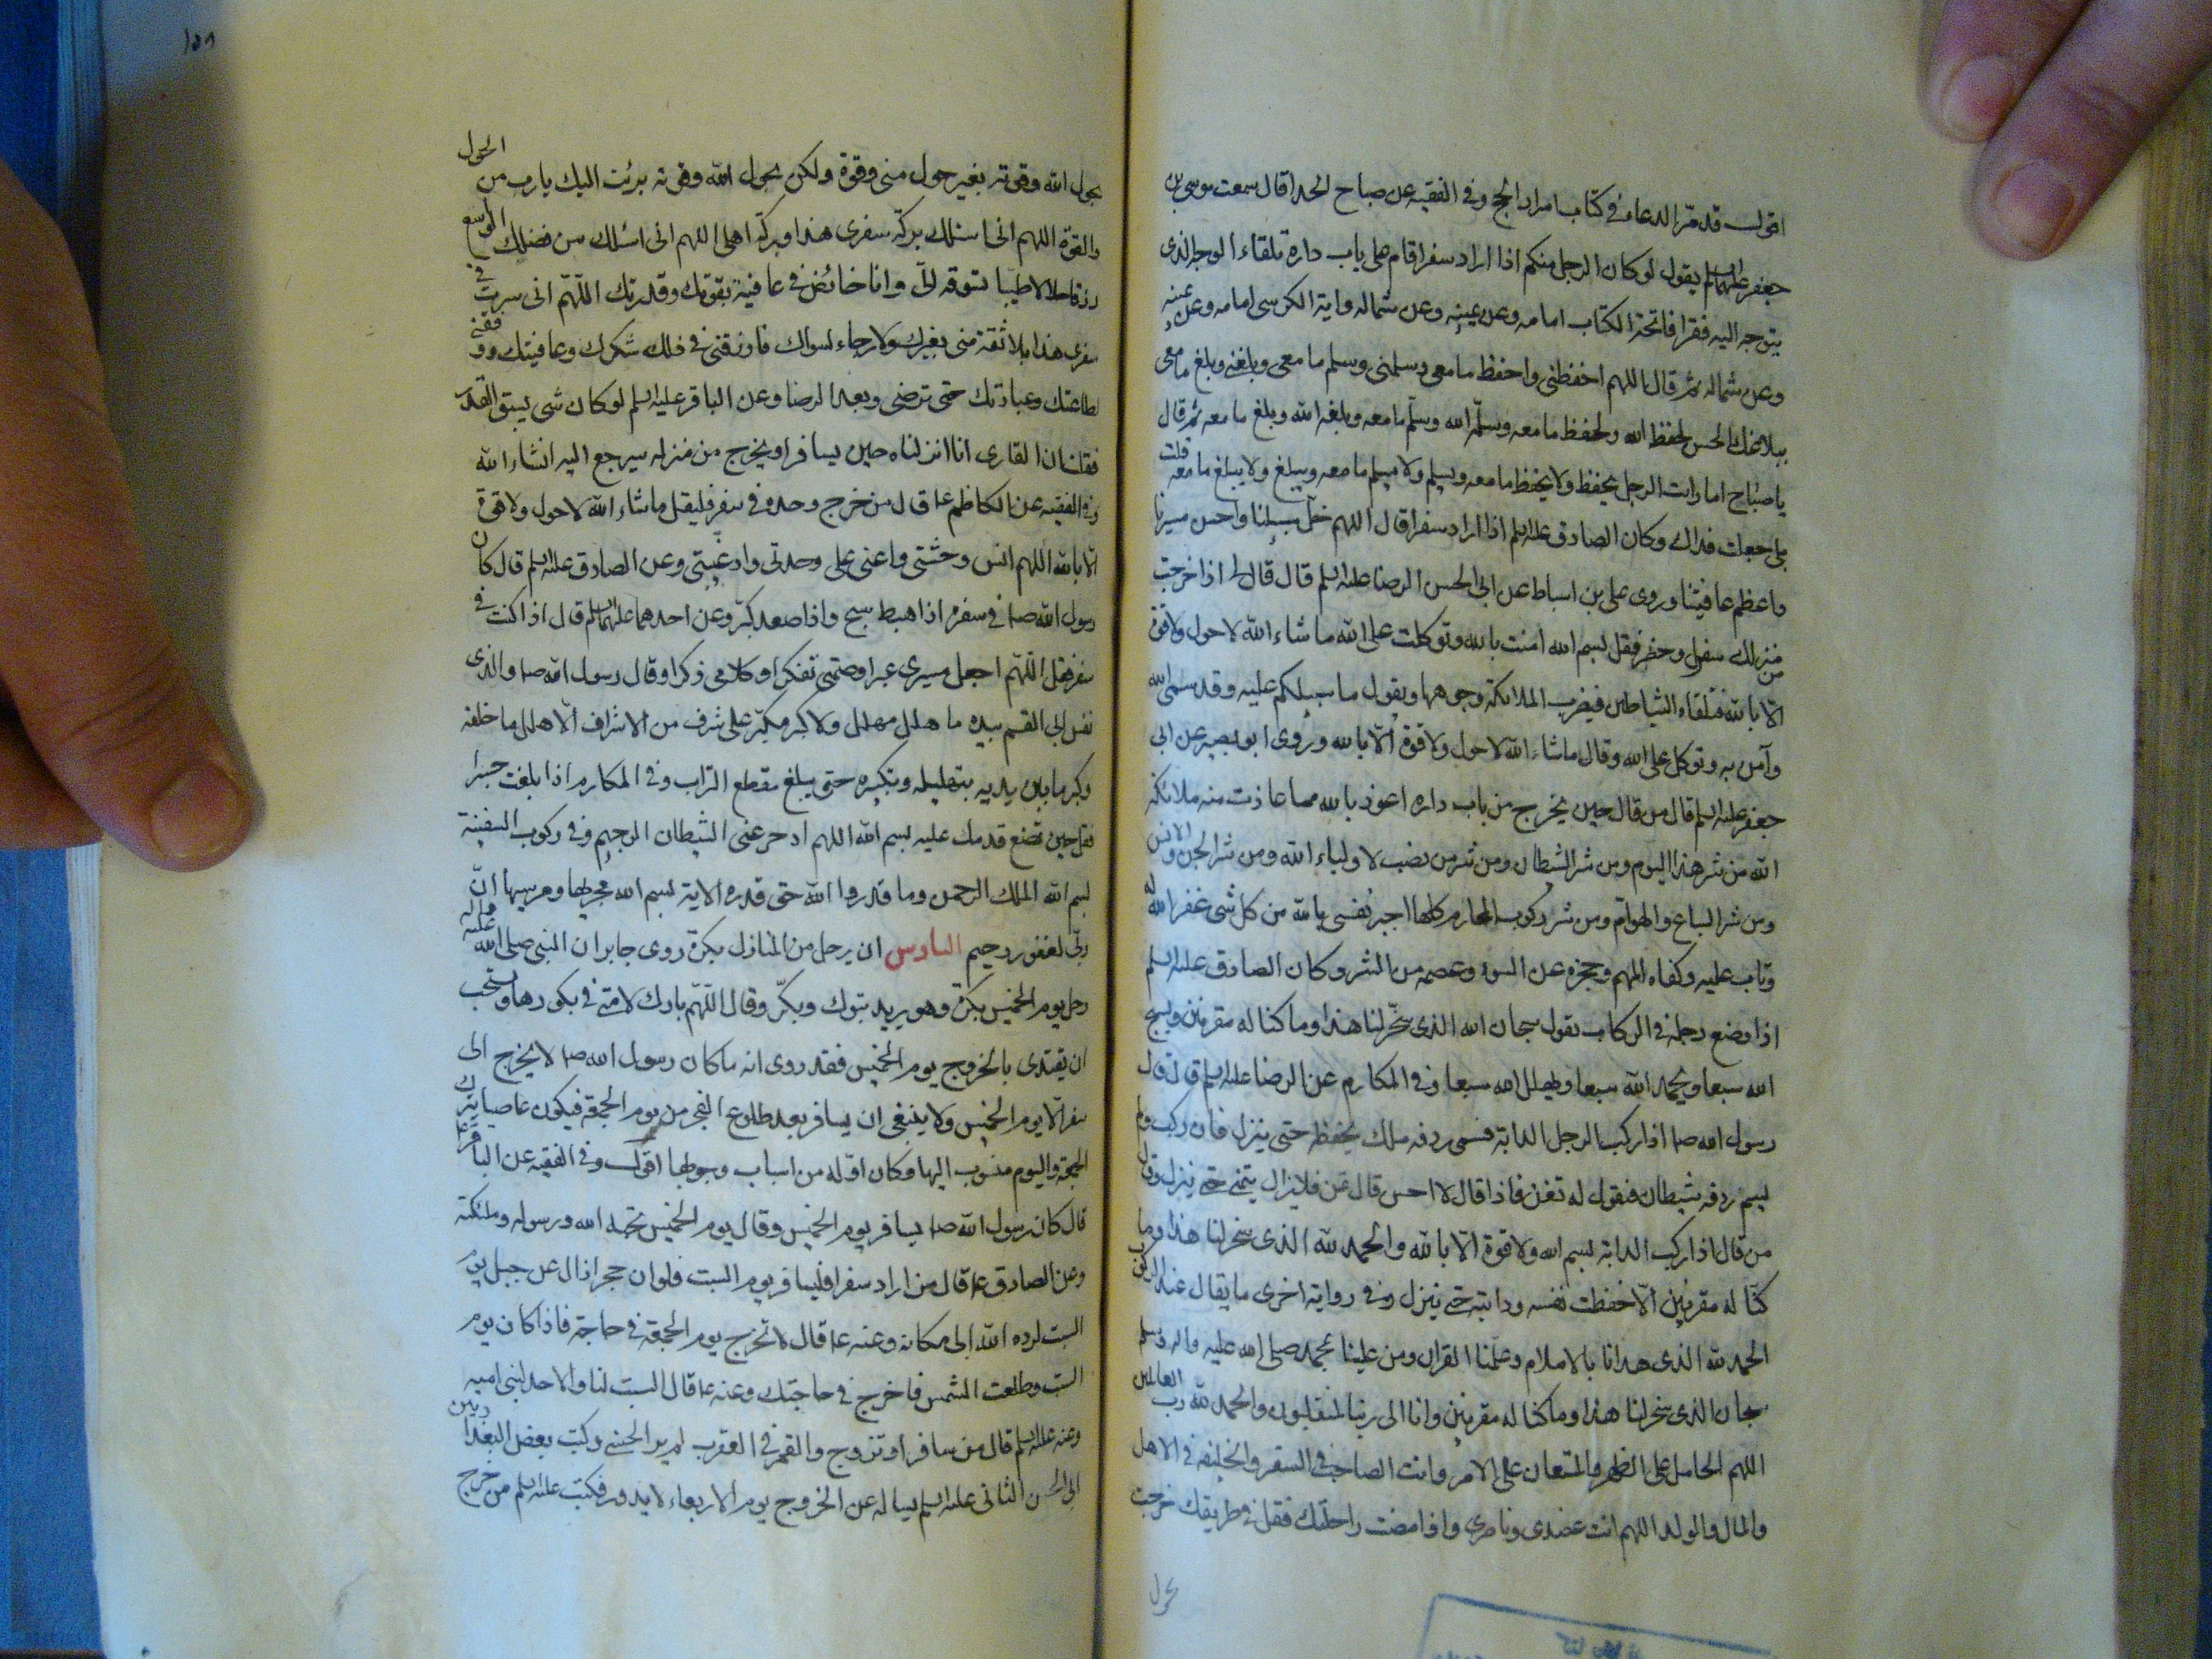 اقول قد مرّ الدعاء في كتاب اسرار الحج وفي الفقيه عن صباح الحذا قال سمعت موسى بن
جعفر عليهما السلم يقول لو كان الرجل منكم اذا اراد سفرا قام على باب داره تلقاء الوجه الذي
يتوجه اليه فقرا فاتحة الكتاب امامه وعن يمينه وعن شماله واية الكرسي امامه وعن يمينه
وعن شماله ثم قال اللهم احفظني واحفظ ما معي وسلمني وسلم ما معي وبلغني وبلغ ما معي
ببلاغك الحسن لحفظه الله ولحفظ ما معه وسلّمه الله وسلّم ما معه وبلغه الله وبلغ ما معه ثم قال
يا صباح اما رايت الرجل يحفظ ولا يحفظ ما معه ويسلم ولا يسلم ما معه ويبلغ ولا يبلغ ما معه قلت
بلى جعلت فداك وكان الصادق عليه السلم اذا اراد سفرا قال اللهم خلّ سبيلنا واحسن مسيرنا
واعظم عافيتنا وروى علي بن اسباط عن ابي الحسن الرضا عليه السلم قال قال لي اذا خرجت
من منزلك في سفر او حضر فقل بسم الله امنت بالله وتوكلت على الله ما شاء الله لا حول ولا قوة
الّا بالله فتلقاه الشياطين فيضرب الملائكة وجوهها وتقول ما سبيلكم عليه وقد سمى الله
وآمن به وتوكل على الله وقال ما شاء الله لا حول ولا قوة الّا بالله وروى ابو بصير عن ابي
جعفر عليه السلم قال من قال حين يخرج من باب داره اعوذ بالله مما عاذت منه ملائكة
الله من شر هذا اليوم ومن شر الشيطان ومن شر من نصب لاولياء الله ومن شر الجن والانس
ومن شر السباع والهوام ومن شر ركوب المحارم كلها اجير نفسي بالله من كل شي غفر الله له
وتاب عليه وكفاه المهم وحجزه عن السوء وعصمه من الشر وكان الصادق عليه السلم
اذا وضع رجله في الركاب يقول سبحان الذي سخّر لنا هذا وما كنا له مقرنين ويسبح
الله سبعا ويحمد الله سبعا ويهلل الله سبعا وفي المكارم عن الرضا عليه السلم قال قال
رسول الله ص اذا ركب الرجل الدابة فسمى ردفه ملك يحفظه حتى ينزل فان ركب ولم
يسم ردفه شيطان فيقول له تغن فاذا قال لا احسن قال تمن فلا يزال يتمنى حتى ينزل وقال
من قال اذا ركب الدابة بسم الله ولا قوة الّا بالله والحمد لله الذي سخر لنا هذا وما
كنّا له مقرنين الّا حفظت نفسه ودابته حتى ينزل وفي رواية اخرى ما يقال عند الركوب
الحمد لله الذي هدانا بالاسلام وعلّمنا القران ومن علينا بمحمد صلى الله عليه واله وسلم
سبحان الذي سخر لنا هذا وما كنا له مقرنين وانا الى ربنا لمنقلبون والحمد لله رب العالمين
اللهم انت الحامل على الظهر والمستعان على الامر وانت الصاحب في السفر والخليفة في الاهل
والمال والولد اللهم انت عضدي وناصري واذا مضت راحلتك فقل في طريقك خرجت
بحول
بحول الله وقوته بغير حول مني وقوة ولكن بحول الله وقوته برئت اليك يا رب من الحول
والقوة اللهم اني اسئلك بركة سفري هذا وبركة اهلي اللهم اني اسئلك من فضلك الواسع
رزقا حلالا طيبا تسوقه اليّ وانا خائض في عافية بقوتك وقدرتك اللّهمّ اني سرت في
سفري هذا بلا ثقة مني بغيرك ولا رجاء لسواك فارزقني في ذلك شكرك وعافيتك ووفقني
لطاعتك وعبادتك حتى ترضى وبعد الرضا وعن الباقر عليه السلم لو كان شي يسبق القدر
فقلت ان القاري انا انزلناه حين يسافر او يخرج من منزله سيرجع اليه انشاء الله
وفي الفقيه عن الكاظم ع قال من خرج وحده في سفر فليقل ما شاء الله لا حول ولا قوة
الّا بالله اللهم انس وحشتي واعني على وحدتي واد غيبتي وعن الصادق عليه السلم قال كان
رسول الله ص في سفره اذا هبط سبح واذا صعد كبّر وعن احدهما عليهما السلم قال اذا كنت في
سفر فقل اللّهمّ اجعل مسيري عبرا وصمتي تفكرا وكلامي ذكرا وقال رسول الله ص والذي
نفس ابي القسم بيده ما هلل مهلل ولا كبر مكبّر على شرف من الاشراف الّا هلل ما خلفه
وكبر ما بين يديه بتهليله وتكبيره حتى يبلغ مقطع التراب وفي المكارم اذا بلغت جسرا
فقل حين تضع قدمك عليه بسم الله اللهم ادحر عني الشيطان الرجيم وفي ركوب السفينة
بسم الله الملك الرحمن وما قدروا الله حق قدره الاية بسم الله مجريها ومرسيها انّ
ربي لغفور رحيم السادس ان يرحل من المنازل بكرة روى جابر ان النبي صلى الله عليه واله
رحل يوم الخميس بكرة وهو يريد تبوك وبكّر وقال اللّهمّ بارك لامتي في بكورها ويستحب
ان يقتدى بالخروج يوم الخميس فقد روى انه ما كان رسول الله ص لا يخرج الى
سفر الّا يوم الخميس ولا ينبغي ان يسافر بعد طلوع الفجر من يوم الجمعة فيكون عاصيا بترك
الجمعة واليوم منسوب اليها وكان اوّله من اسباب وجوبها اقول وفي الفقيه عن الباقر ع
قال كان رسول الله ص يسافر يوم الخميس وقال يوم الخميس يحبه الله ورسوله وملئكته
وعن الصادق ع قال من اراد سفرا فليسافر يوم السبت فلو ان حجرا زال عن جبل يوم
السبت لرده الله الى مكانه وعنه ع قال لا تخرج يوم الجمعة في حاجة فاذا كان يوم
السبت وطلعت الشمس فاخرج في حاجتك وعنه ع قال السبت لنا والاحد لبني امية
وعنه عليه السلم قال من سافر او تزوج والقمر في العقرب لم ير الحسنى وكتب بعض البغداديين
الى ابي الحسن الثاني عليه السلم يساله عن الخروج يوم الاربعاء لا يدور فكتب عليه السلم من خرج